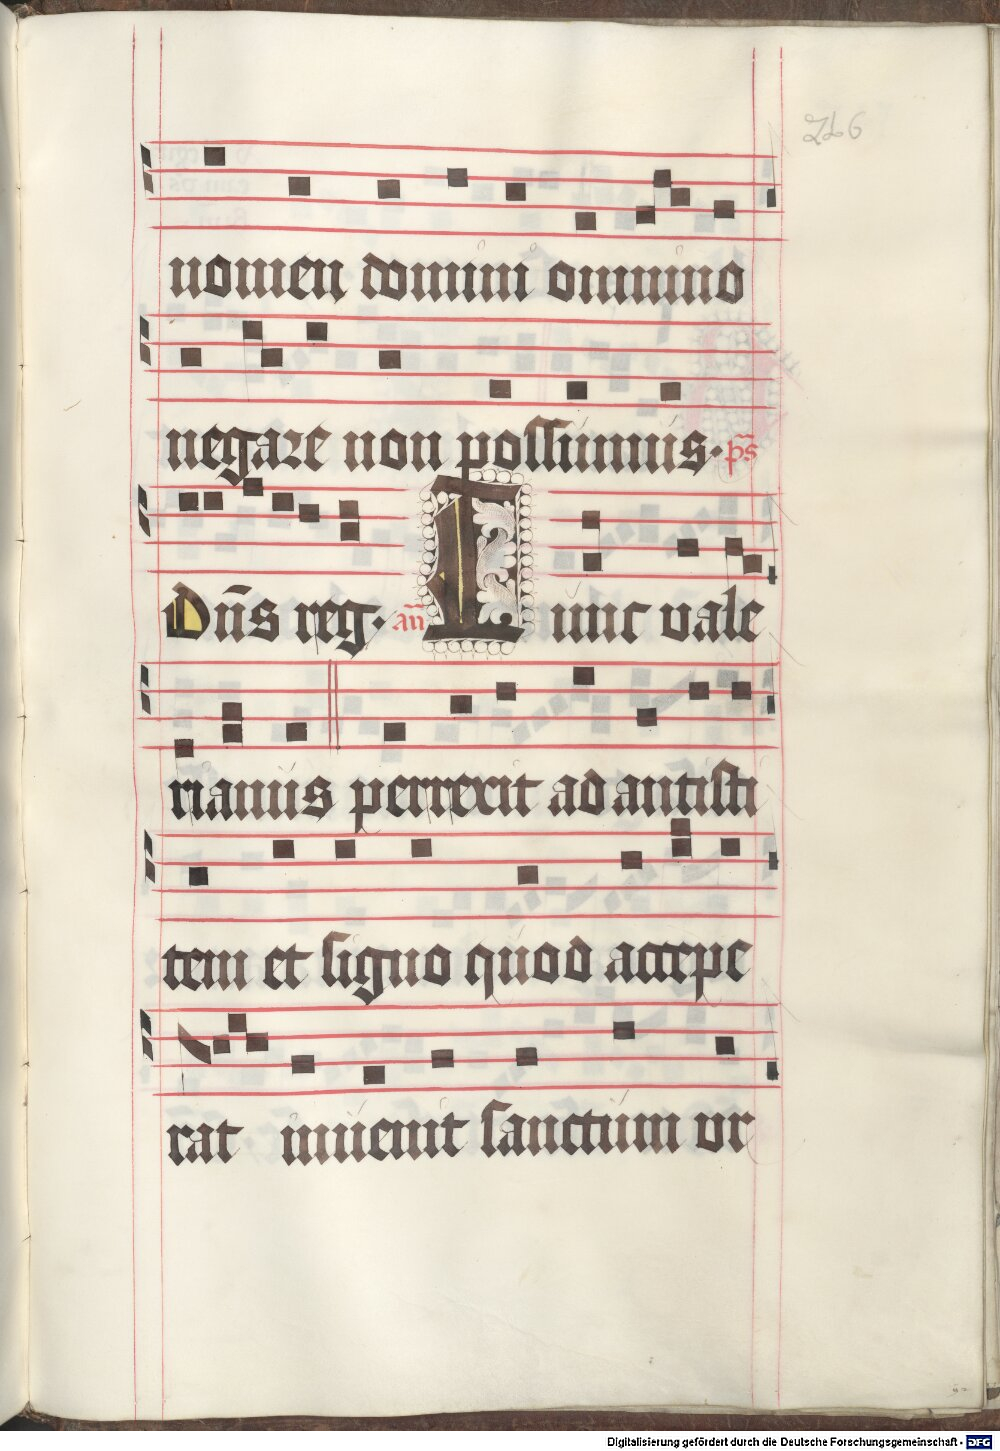 246
nomen domini omnino
negare non possumus. p̄s
Dn̄s reg. an̄ Tunc vale
rianus perrexit ad antisti
tem et signo quod accepe
rat invenit sanctum ur
Digitalisierung gefördert durch die Deutsche Forschungsgemeinschaft - DFG